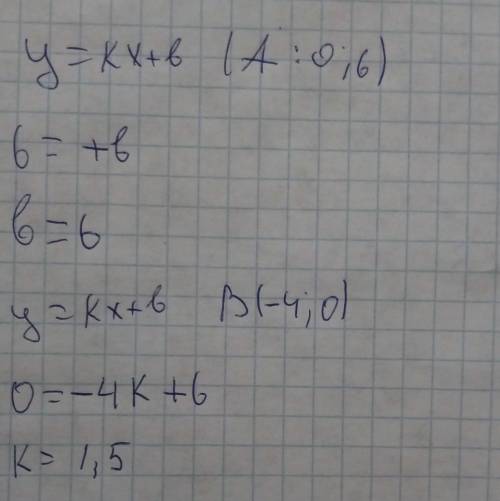 y = kx+в (A : 0 ; 6)
6 = +в
в = 6
y = kx+в B(-4; 0)
0 = -4k + 6
k = 1,5